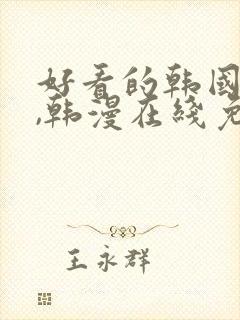 好看的韩国
,韩漫在线免
王永群